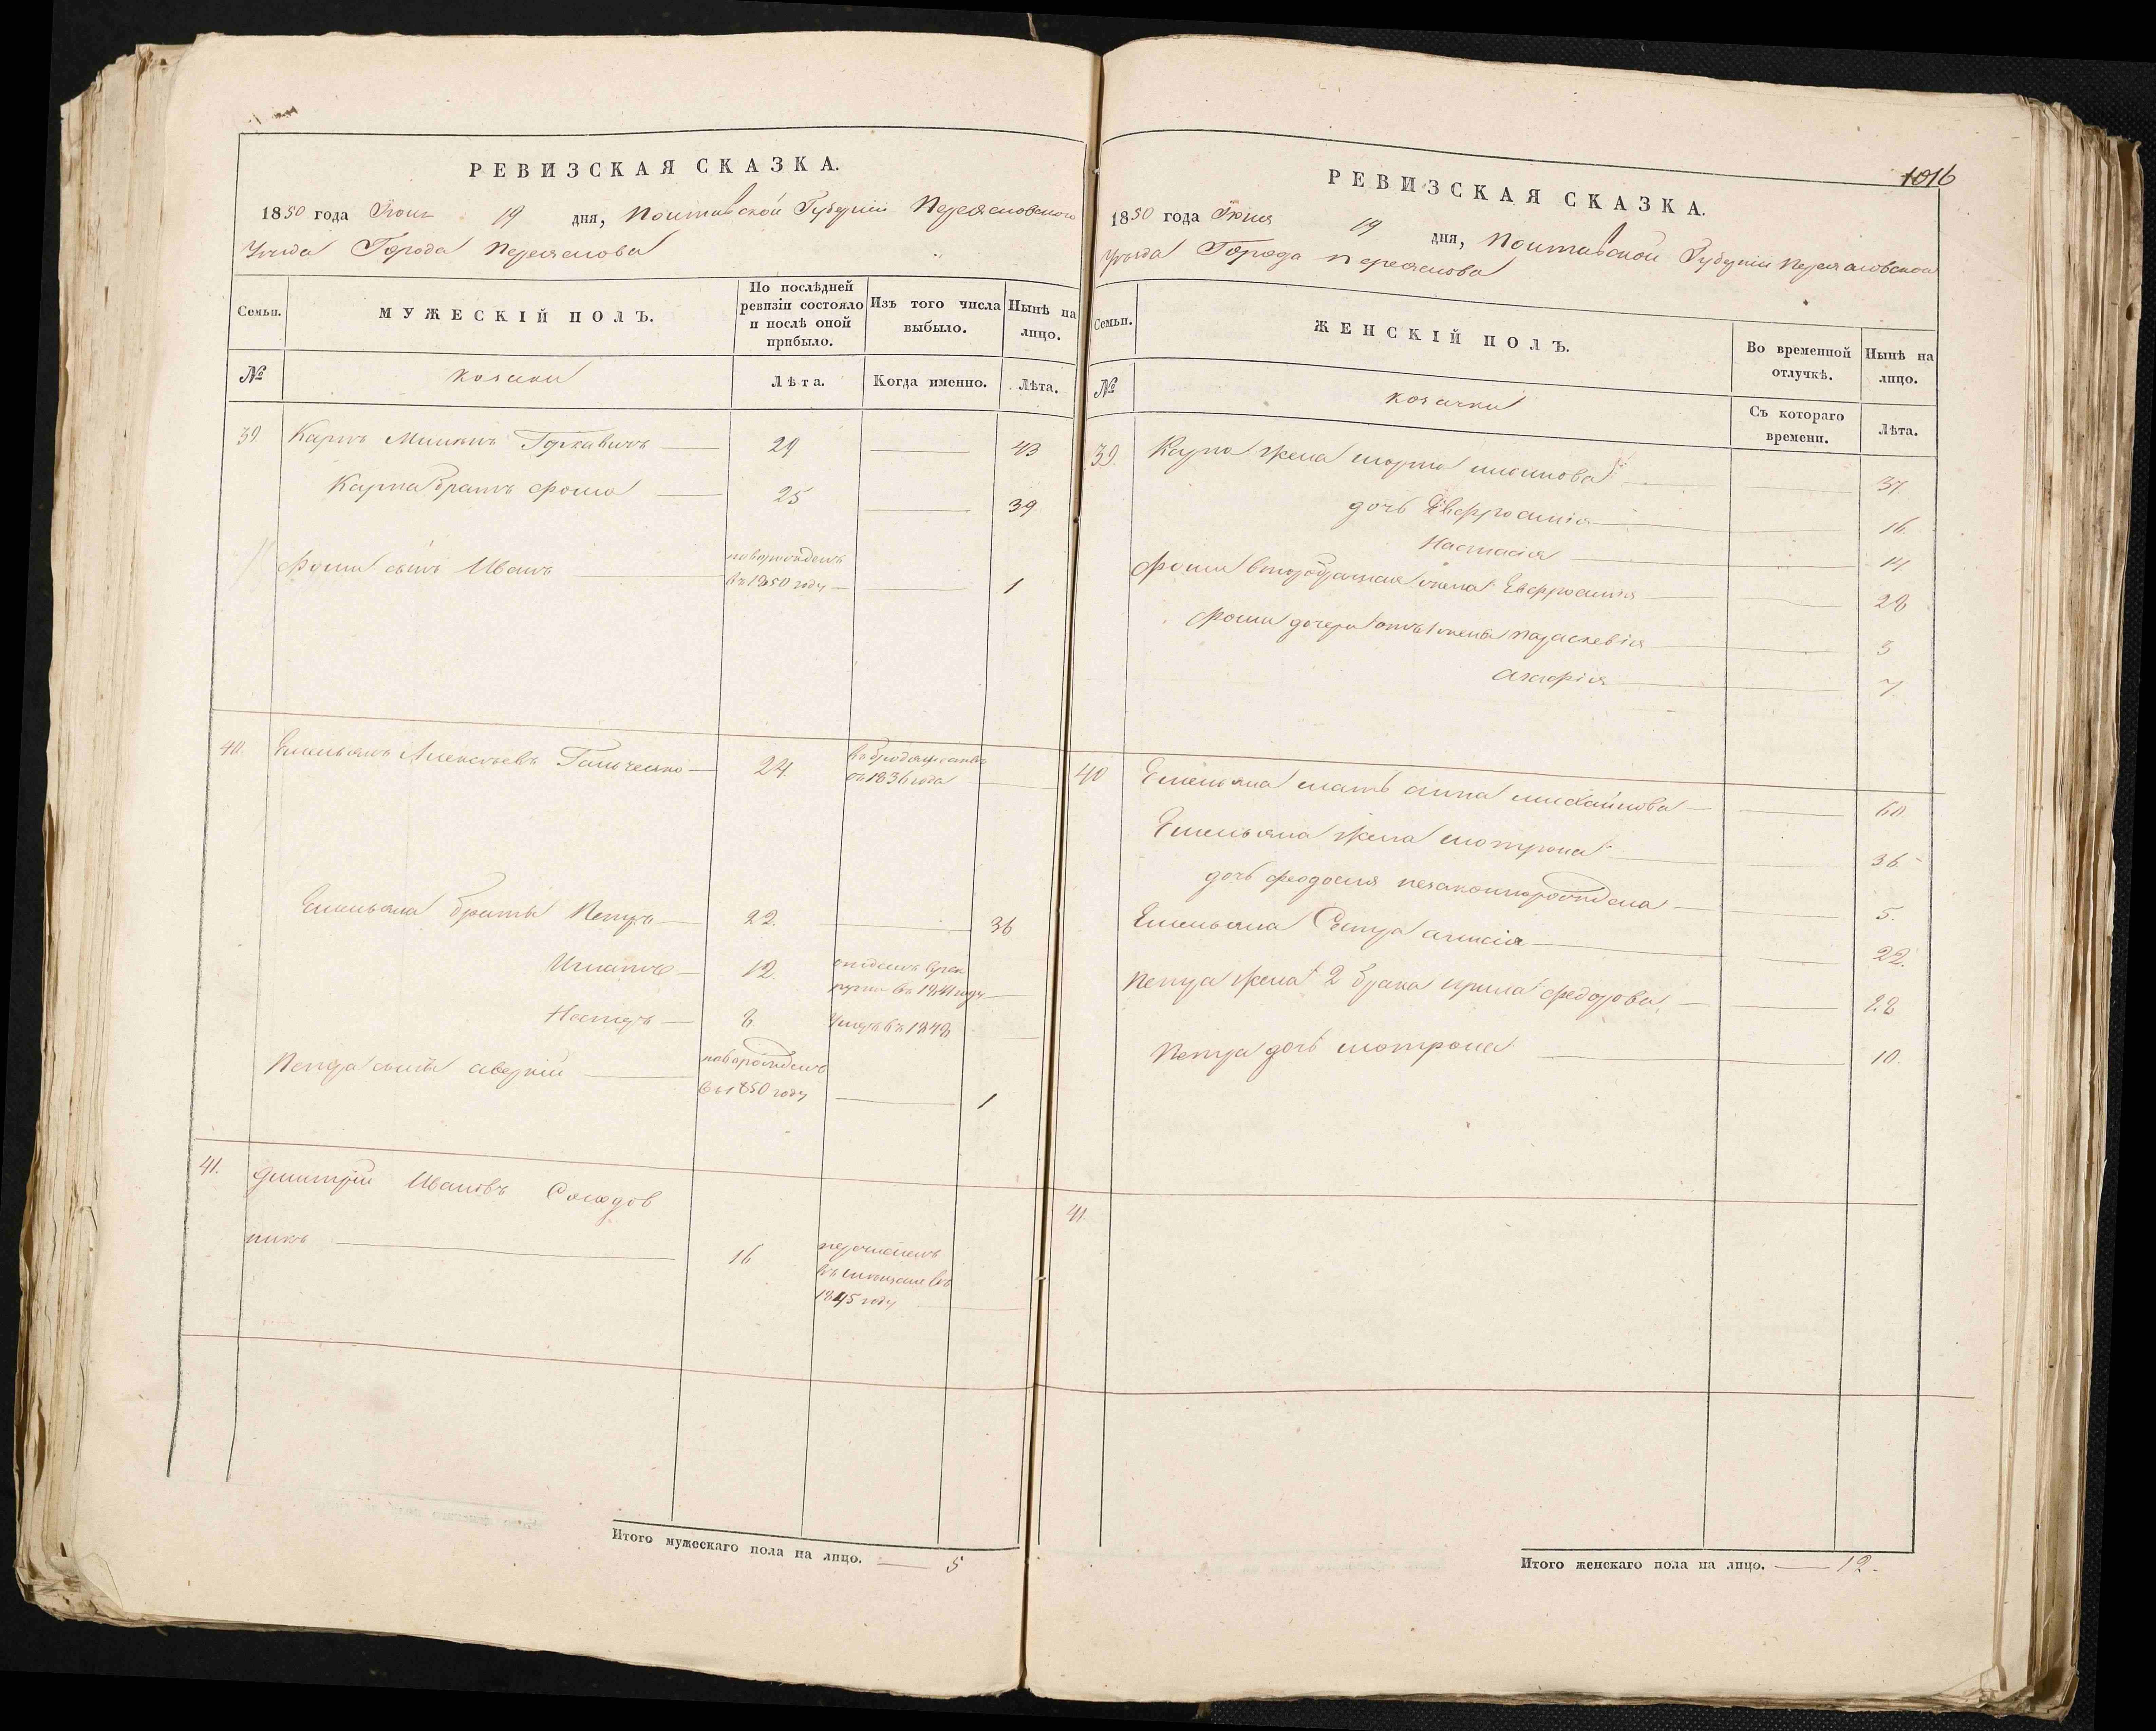 РЕВИЗСКАЯ СКАЗКА.
1850 года Іюня 19 дня, Полтавской Губерніи Переяславского
Уѣзда Города Переяслова
Семьи.
МУЖЕСКІЙ ПОЛЪ.
По послѣдней ревизіи состояло и послѣ оной прибыло.
Изъ того числа выбыло.
Нынѣ на лицо.
№
козаки
Лѣта.
Когда именно.
Лѣта.
39. Карпъ 29 43
Карпа братъ Фома 25 39
Фомы сынъ Иванъ новорожденъ
въ 1850 году 1
40. Емельянъ Алексѣевъ 24. въ бродяжествѣ
съ 1836 года
Емельяна братья Петръ 22. 36
Игнатъ 12. отданъ врек
руты въ 1841 году
Несторъ 8. Умеръ въ 1848
Петра сынъ Аверкій новорожденъ
въ 1850 году 1
41. Дмитрій Ивановъ Солодов
никъ 16 перечисленъ
въ мещане въ
1845 году
Итого мужескаго пола на лицо. 5
1016
РЕВИЗСКАЯ СКАЗКА.
1850 года Іюня 19 дня, Полтавской Губерніи Переяславского
Уѣзда Города Переяслова
Семьи.
ЖЕНСКІЙ ПОЛЪ.
Во временной отлучкѣ.
Нынѣ на лицо.
№
козачки
Съ котораго времени.
Лѣта.
39. Карпа жена 37
дочь Евфросинія 16.
Настасія 14
Фомы второбрачная жена Евфросинія 28
Фомы дочери отъ 1 жены Параскевія 3
Агафія 7
40 Емельяна мать Анна Михайлова 60.
Емельяна жена Мотрона 36
дочь Феодосія незаконнорождена 5.
Емельяна Сестра 22.
Петра жена 2 брака Ирина Федорова 28
Петра дочь Мотрона 10.
41.
Итого женскаго пола на лицо. 12.